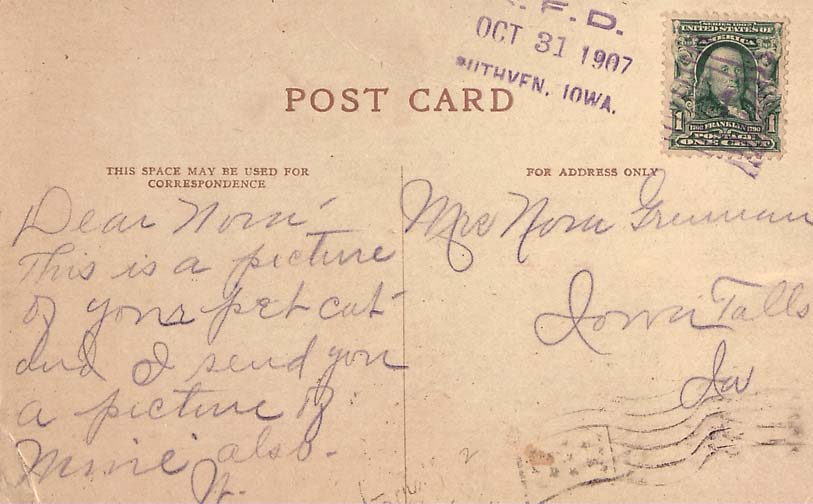 R. F. D.
OCT 31 1907
RUTHVEN, IOWA.
SERIES 1902
UNITED STATES OF
AMERICA
1 1706 FRANKLIN 1790 1
POSTAGE
ONE CENT
POST CARD
THIS SPACE MAY BE USED FOR
CORRESPONDENCE
FOR ADDRESS ONLY
Dear Nora
This is a picture
of your pet cat
and I send you
a picture of
mine also.
Mrs Nora
Iowa Falls
Ia